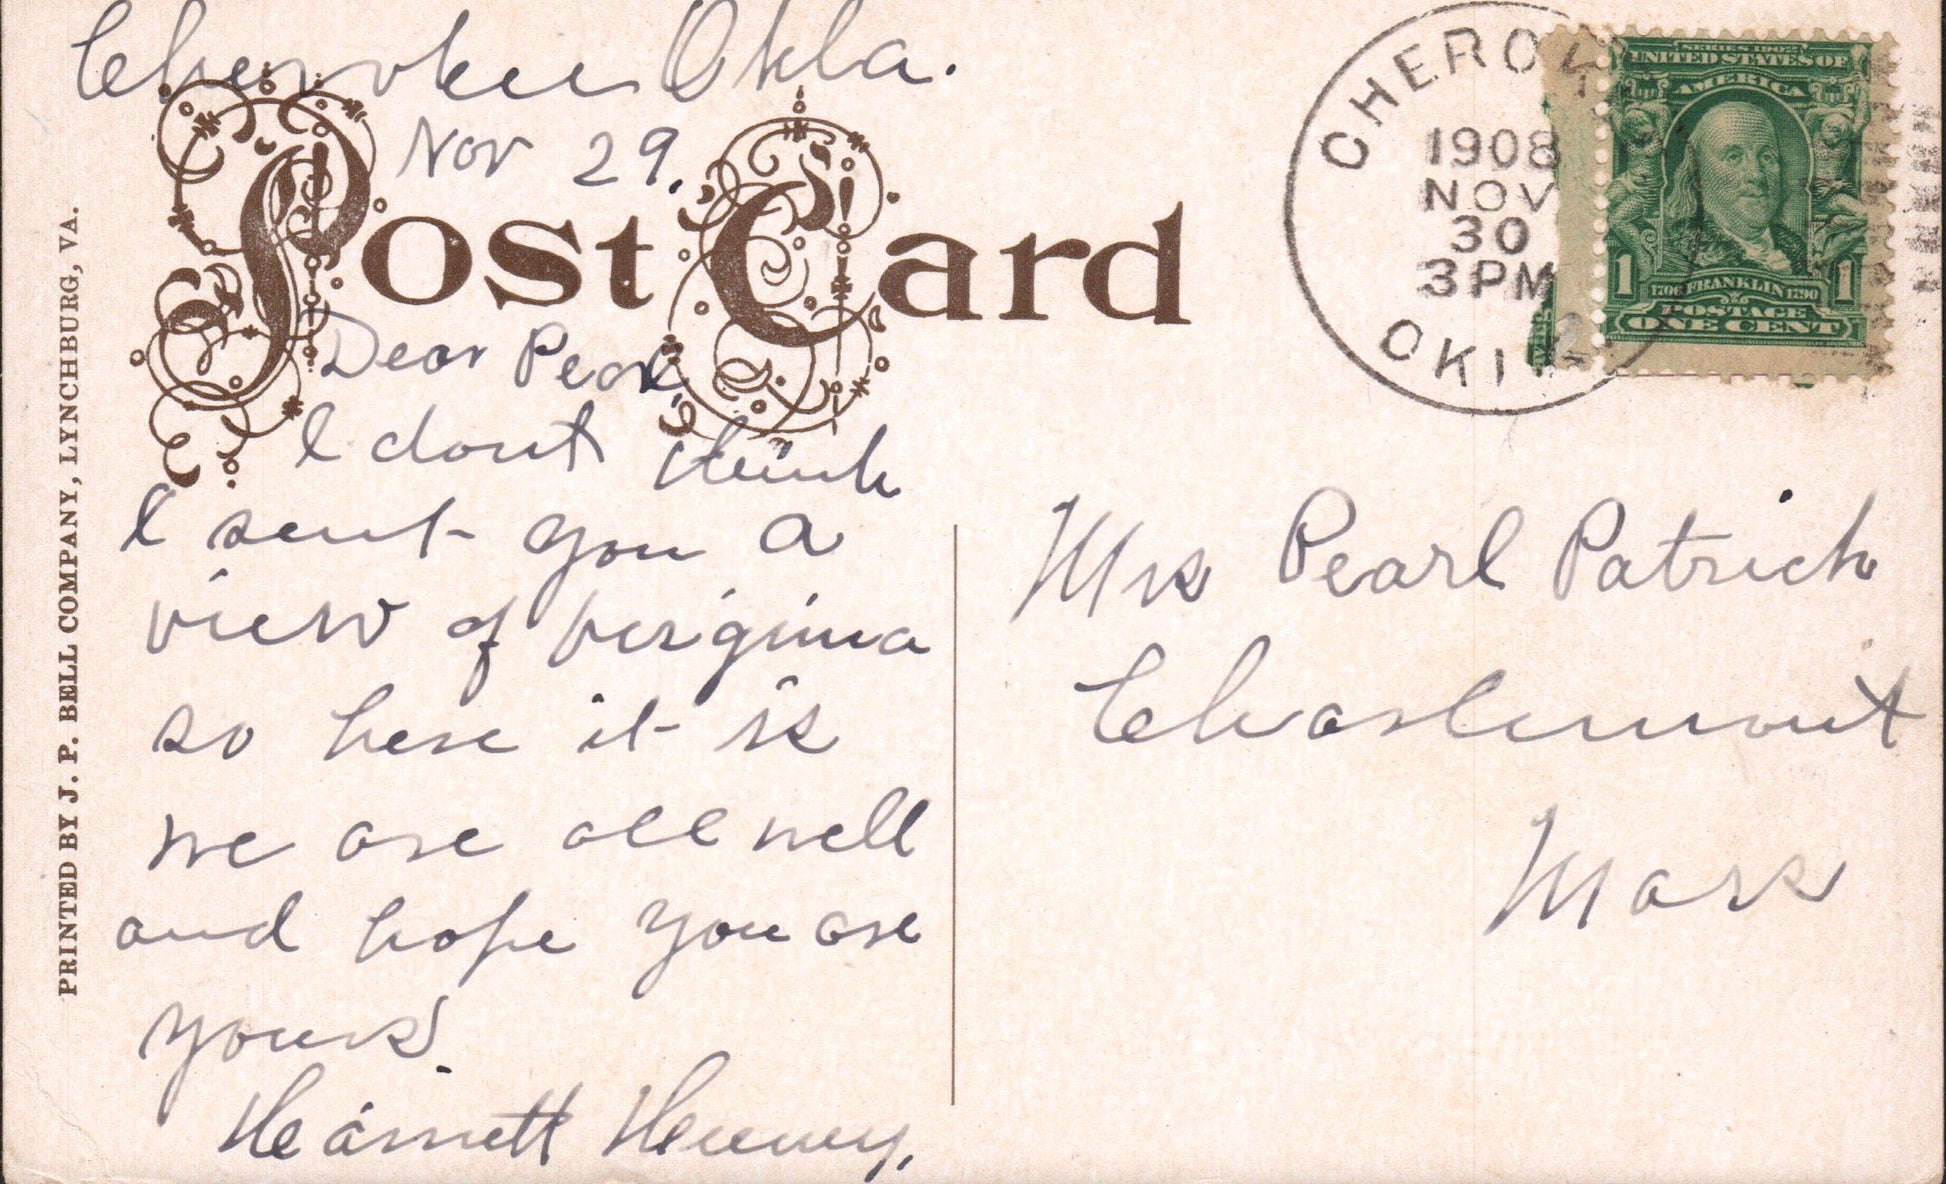 Cherokee Okla.
Nov 29.
Post Card
Dear Pearl,
I dont think
I sent you a
view of Virginia
so here it is
we are all well
and hope you are
yours
Henney,
PRINTED BY J. P. BELL COMPANY, LYNCHBURG, VA.
CHEROK
1908
NOV
30
3 PM
OKL
SERIES 1902
UNITED STATES OF
AMERICA
1 1706 FRANKLIN 1790 1
POSTAGE
ONE CENT
Mrs Pearl Patrick
Charlemont
Mass